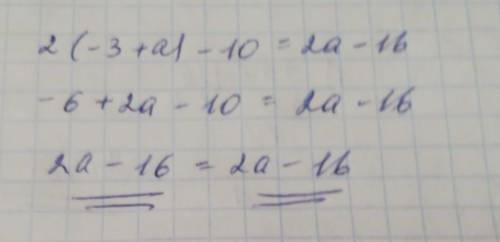 2(-3+a)-10=2a-16
-6+2a-10=2a-16
2a-16=2a-16